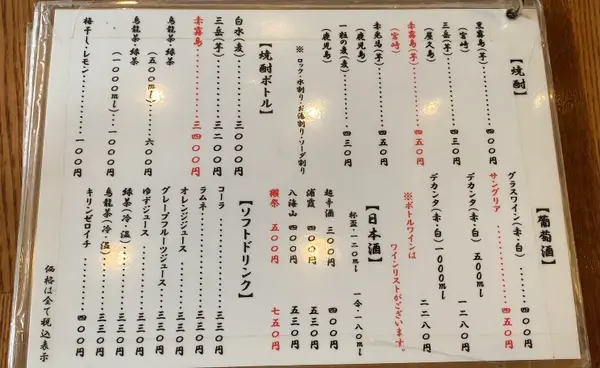 【焼酎】
黒霧島(芋)・・・・・・四〇〇円
(宮崎)
三岳(芋)・・・・・・四三〇円
(屋久島)
赤霧島(芋)・・・・・・四五〇円
(宮崎)
赤兎馬(芋)・・・・・・四五〇円
(鹿児島)
一粒の麦(麦)・・・・・・四三〇円
(鹿児島)
※ ロック・水割り・お湯割り・ソーダ割り
【焼酎ボトル】
白水(麦)・・・・・・三〇〇〇円
三岳(芋)・・・・・・三二〇〇円
赤霧島・・・・・・三四〇〇円
烏龍茶・緑茶
(五〇〇ml)・・・・・・六〇〇円
烏龍茶・緑茶
(一〇〇〇ml)・・・・・・一〇〇〇円
梅干し・レモン・・・・・・一〇〇円
【葡萄酒】
グラスワイン(赤・白)・・・・・・四〇〇円
サングリア・・・・・・四五〇円
デカンタ(赤・白) 五〇〇ml
一二八〇円
デカンタ(赤・白) 一〇〇〇ml
二二八〇円
※ボトルワインは
ワインリストがございます。
【日本酒】
杯盃・一二〇ml 一合・一八〇ml
超辛酒 三〇〇円 四三〇円
浦霞 四〇〇円 五三〇円
八海山 四〇〇円 五三〇円
獺祭 五〇〇円 七五〇円
【ソフトドリンク】
コーラ・・・・・・三三〇円
ラムネ・・・・・・三三〇円
オレンジジュース・・・・・・三三〇円
グレープフルーツジュース・・・・・・三三〇円
ゆずジュース・・・・・・三三〇円
緑茶(冷・温)・・・・・・三三〇円
烏龍茶(冷・温)・・・・・・三三〇円
キリンゼロイチ・・・・・・四〇〇円
価格は全て税込表示